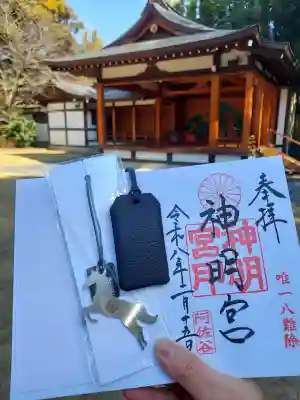 奉拝
唯一八難除
神明宮
神明
宮
阿佐谷
令和八年一月十五日